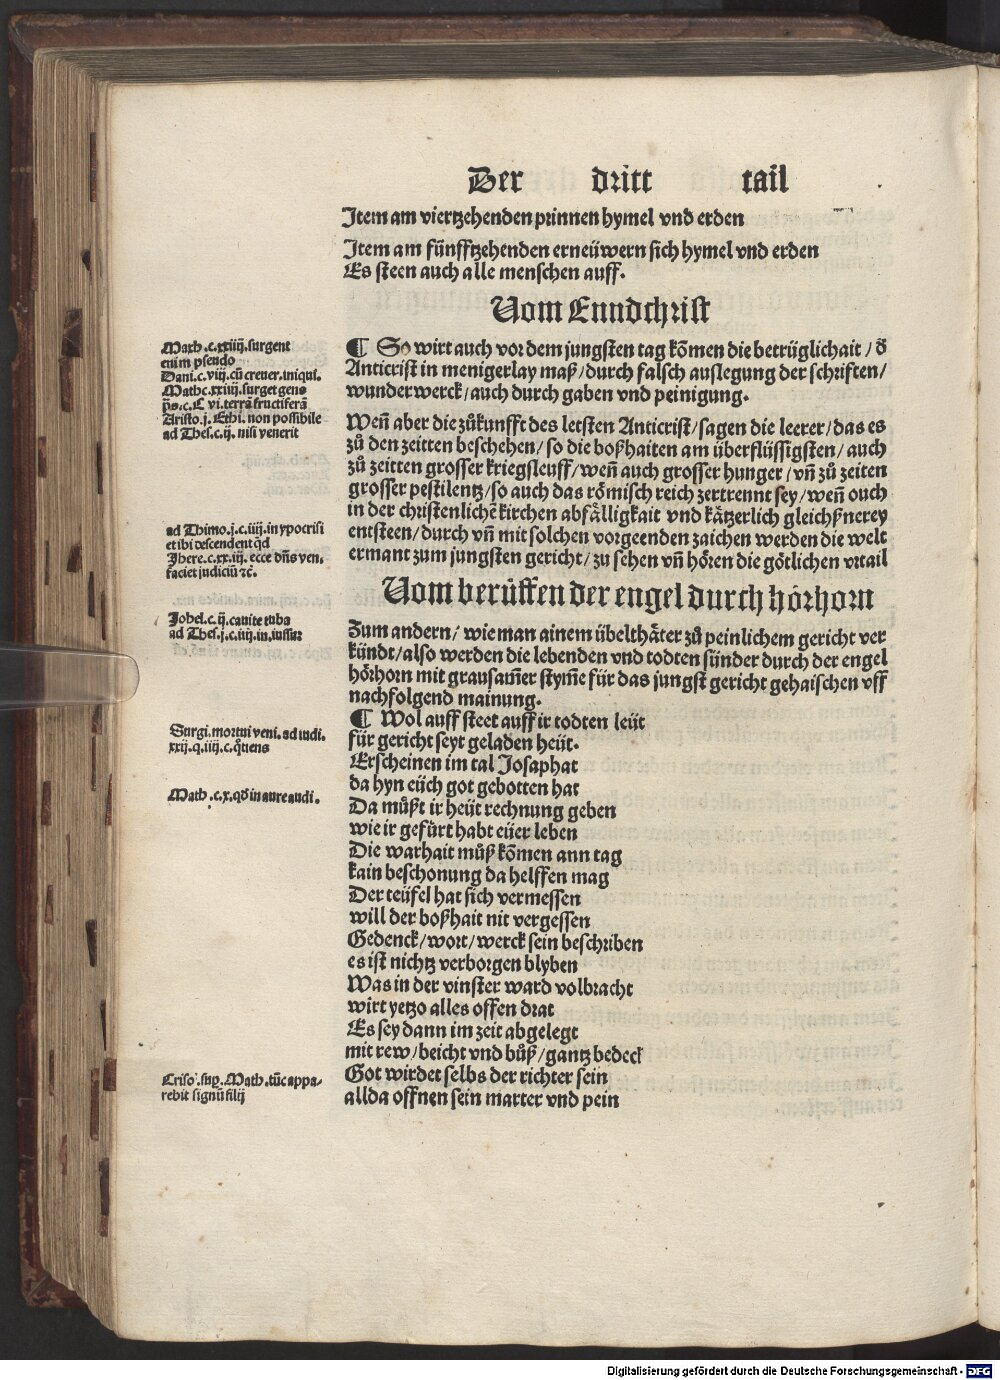 Der dritt tail
Item am viertzehenden prinnen hymel vnd erden
Item am fünfftzehenden erneüwern sich hymel vnd erden
Es steen auch alle menschen auff.
Vom Enndchrist
¶ So wirt auch vor dem jungsten tag kōmen die betrüglichait / d̄
Anticrist in menigerlay maß / durch falsch auslegung der schriften /
wunderwerck / auch durch gaben vnd peinigung.
Math .c.xxiiij. surgent
enim pseudo
Dani.c.viij. cū creuer. iniqui.
Math c.xxiiij. surget gens
p̄s.c. C vi. terrā fructiferā
Aristo.j. Ethi. non possibile
ad Thes.c.ij. nisi venerit
Weñ aber die zůkunfft des letsten Anticrist / sagen die leerer / das es
zů den zeitten beschehen / so die boßhaiten am überflüssigsten / auch
zů zeitten grosser kriegsleuff / weñ auch grosser hunger / vñ zů zeiten
grosser pestilentz / so auch das römisch reich zertrennt sey / weñ ouch
in der christenlichē kirchen abfälligkait vnd kätzerlich gleichßnerey
entsteen / durch vñ mit solchen vorgeenden zaichen werden die welt
ermant zum jungsten gericht / zu sehen vñ hören die götlichen vrtail
ad Thimo.j.c.iiij. in ypocrisi
et ibi descendent qd
Jhere.c.xx.iij. ecce dn̄s ven.
faciet judiciū ⁊c.
Vom berůffen der engel durch hörhorn
Zum andern / wie man ainem übelthäter zů peinlichem gericht ver
kündt / also werden die lebenden vnd todten sünder durch der engel
hörhorn mit grausam̄er stym̄e für das jungst gericht gehaischen vff
nachfolgend mainung.
Johel.c.ij. canite tuba
ad Thes.j.c.iiij. in. iussur
¶ Wol auff steet auff ir todten leüt
für gericht seyt geladen heüt.
Erscheinen im tal Josaphat
da hyn eüch got gebotten hat
Surgi. mortui veni. ad iudi.
xxij.q.iiij.c. q̄uens
Da můßt ir heüt rechnung geben
wie ir gefürt habt eüer leben
Math .c.x. qd̄ in aure audi.
Die warhait můß kōmen ann tag
kain beschonung da helffen mag
Der teüfel hat sich vermessen
will der boßhait nit vergessen
Gedenck / wort / werck sein beschriben
es ist nichtz verborgen blyben
Was in der vinster ward volbracht
wirt yetzo alles offen drat
Es sey dann im zeit abgelegt
mit rew / beicht vnd bůß / gantz bedeck
Got wirdet selbs der richter sein
allda offnen sein marter vnd pein
Criso'. sup. Math. tūc appa-
rebit signū filij
Digitalisierung gefördert durch die Deutsche Forschungsgemeinschaft - DFG